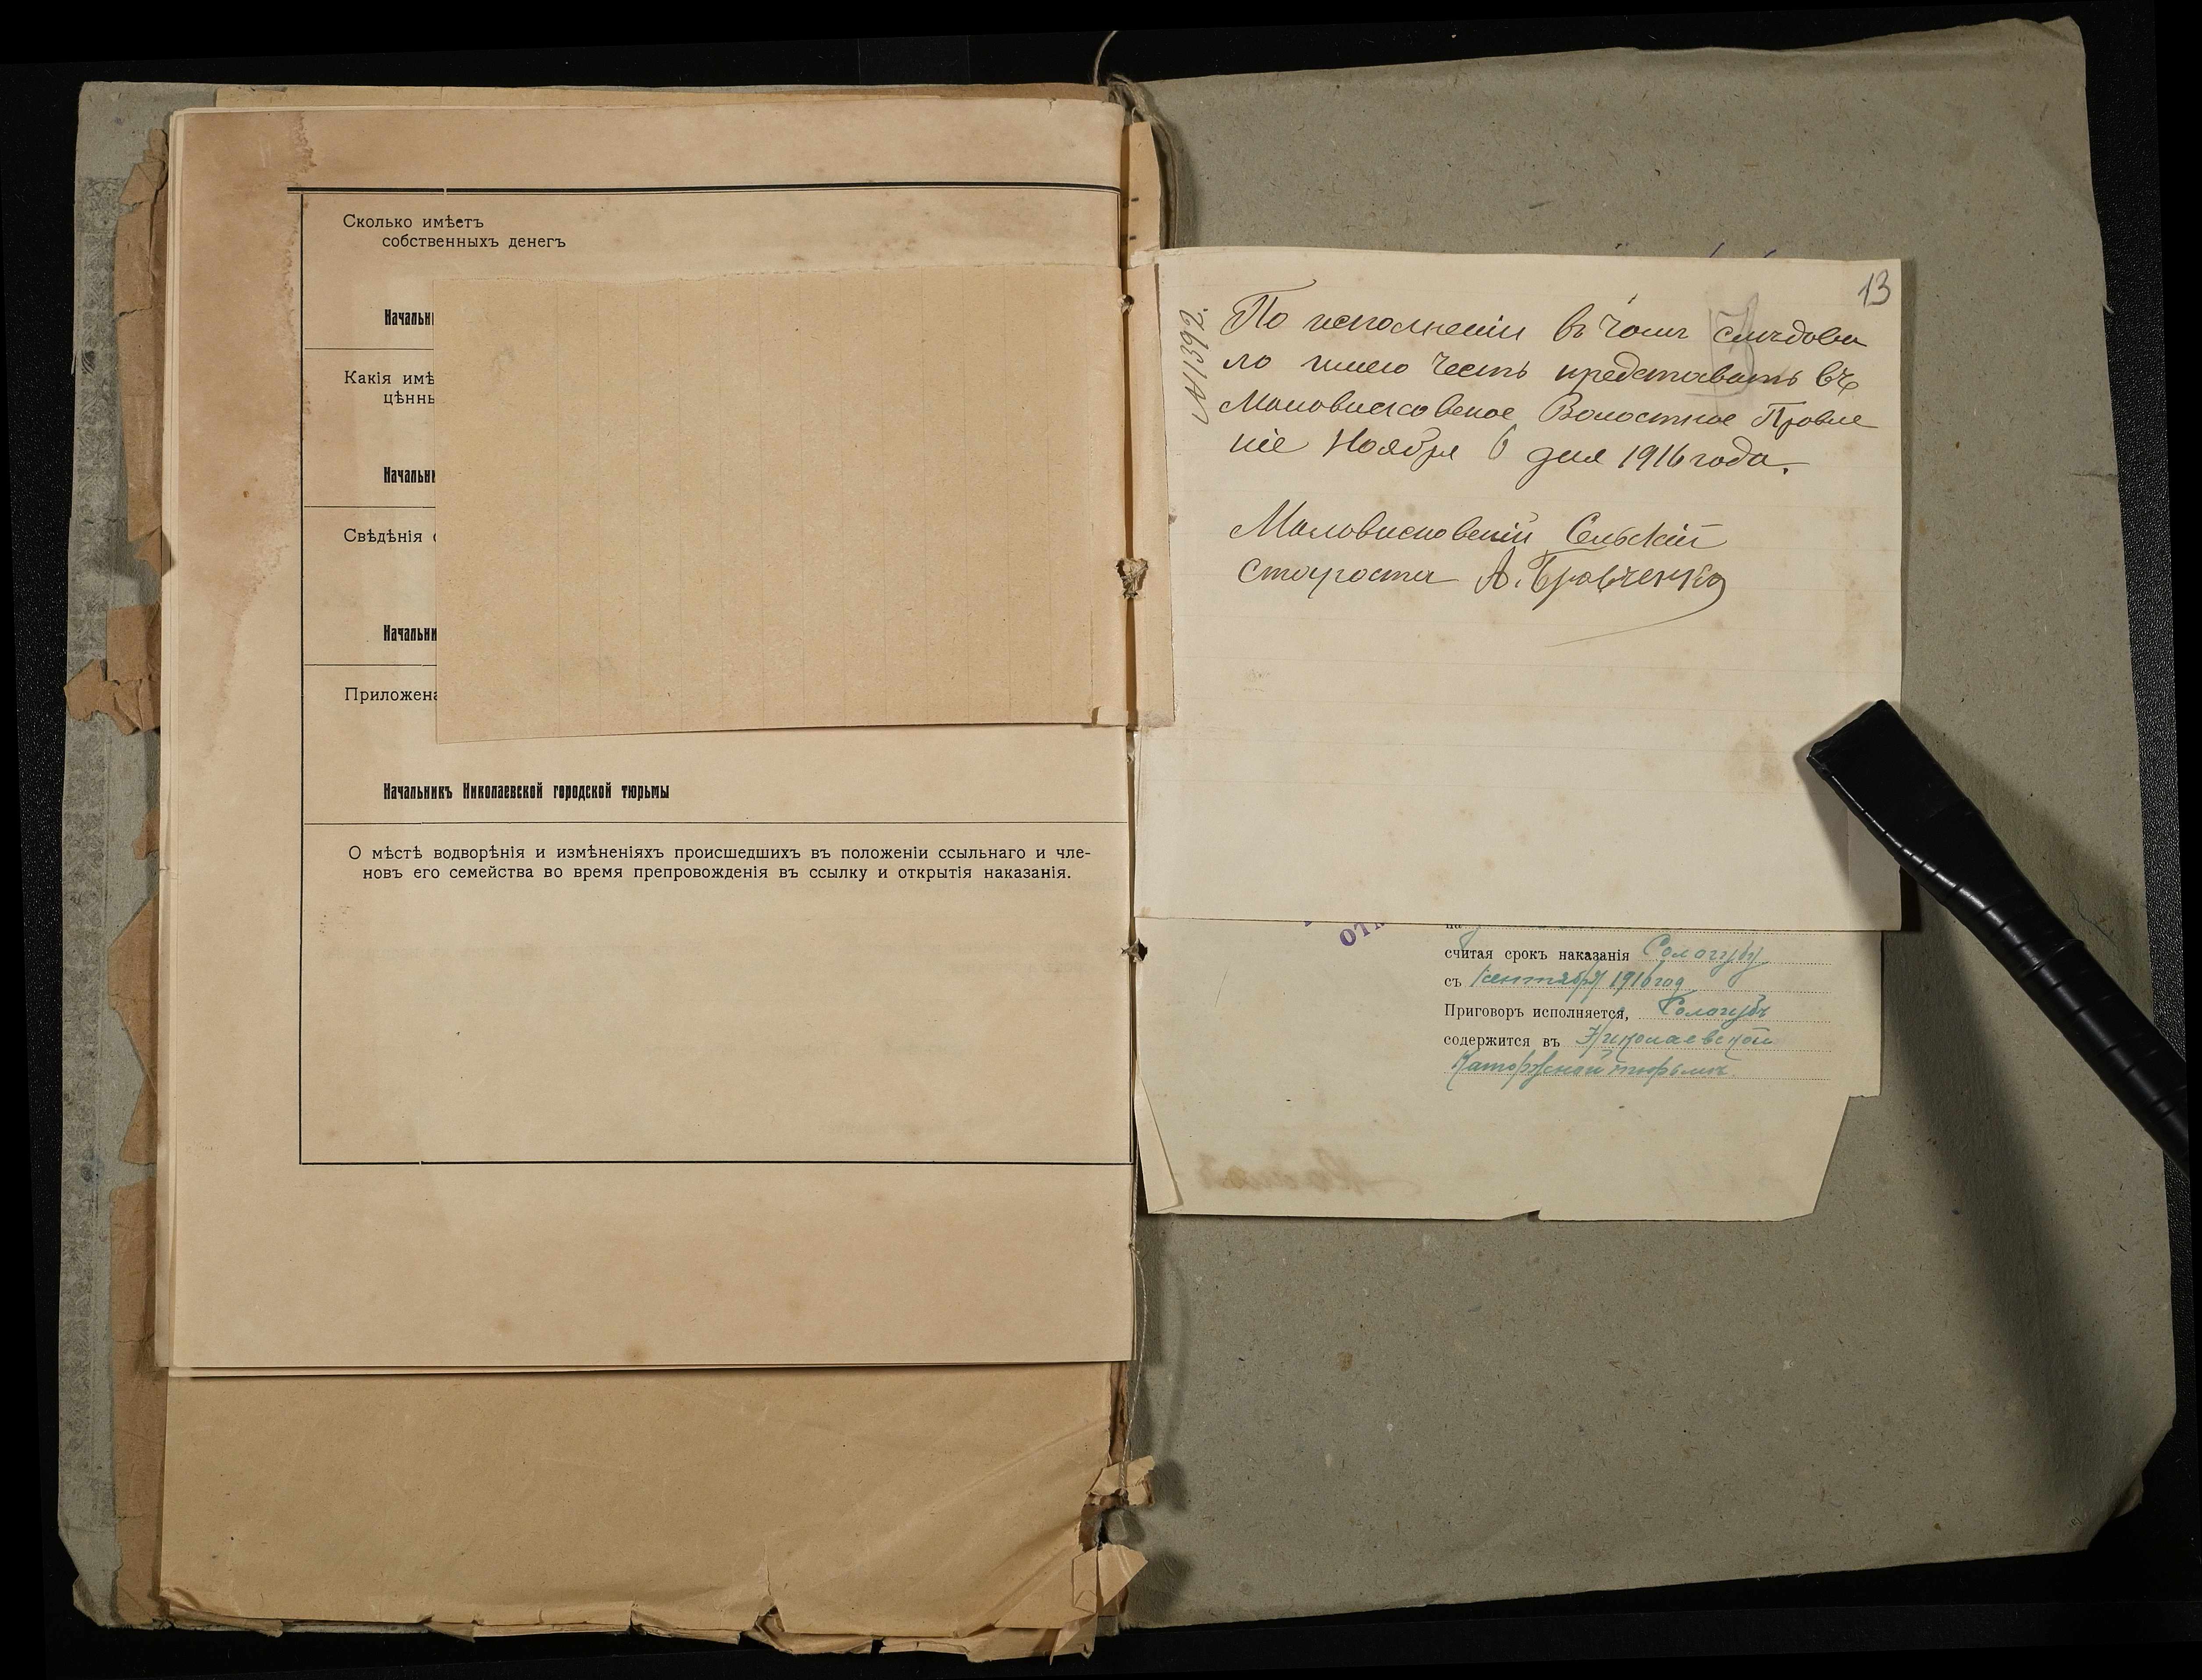 Сколько имѣетъ
собственныхъ денегъ
Начальн
Какія имѣ
цѣнны
Начальн
Свѣдѣнія
Начальн
Приложена
Начальникъ Николаевской городской тюрьмы
О мѣстѣ водворѣнія и измѣненіяхъ происшедшихъ въ положеніи ссыльнаго и чле-
новъ его семейства во время препровожденія въ ссылку и открытія наказанія.
13
№ 1392.
По исполненіи въ чомъ слѣдова
ло имею честь представить въ
Маловисковское Волостное Правле
ніе Ноября 6 дня 1916 года.
Маловисковскій Сельскій
Староста А. Бравченко
от
считая срокъ наказанія Сологубу
съ 1 сентября 1916 год
Приговоръ исполняется, Сологубъ
содержится въ Николаевской
Каторжной тюрьмѣ.